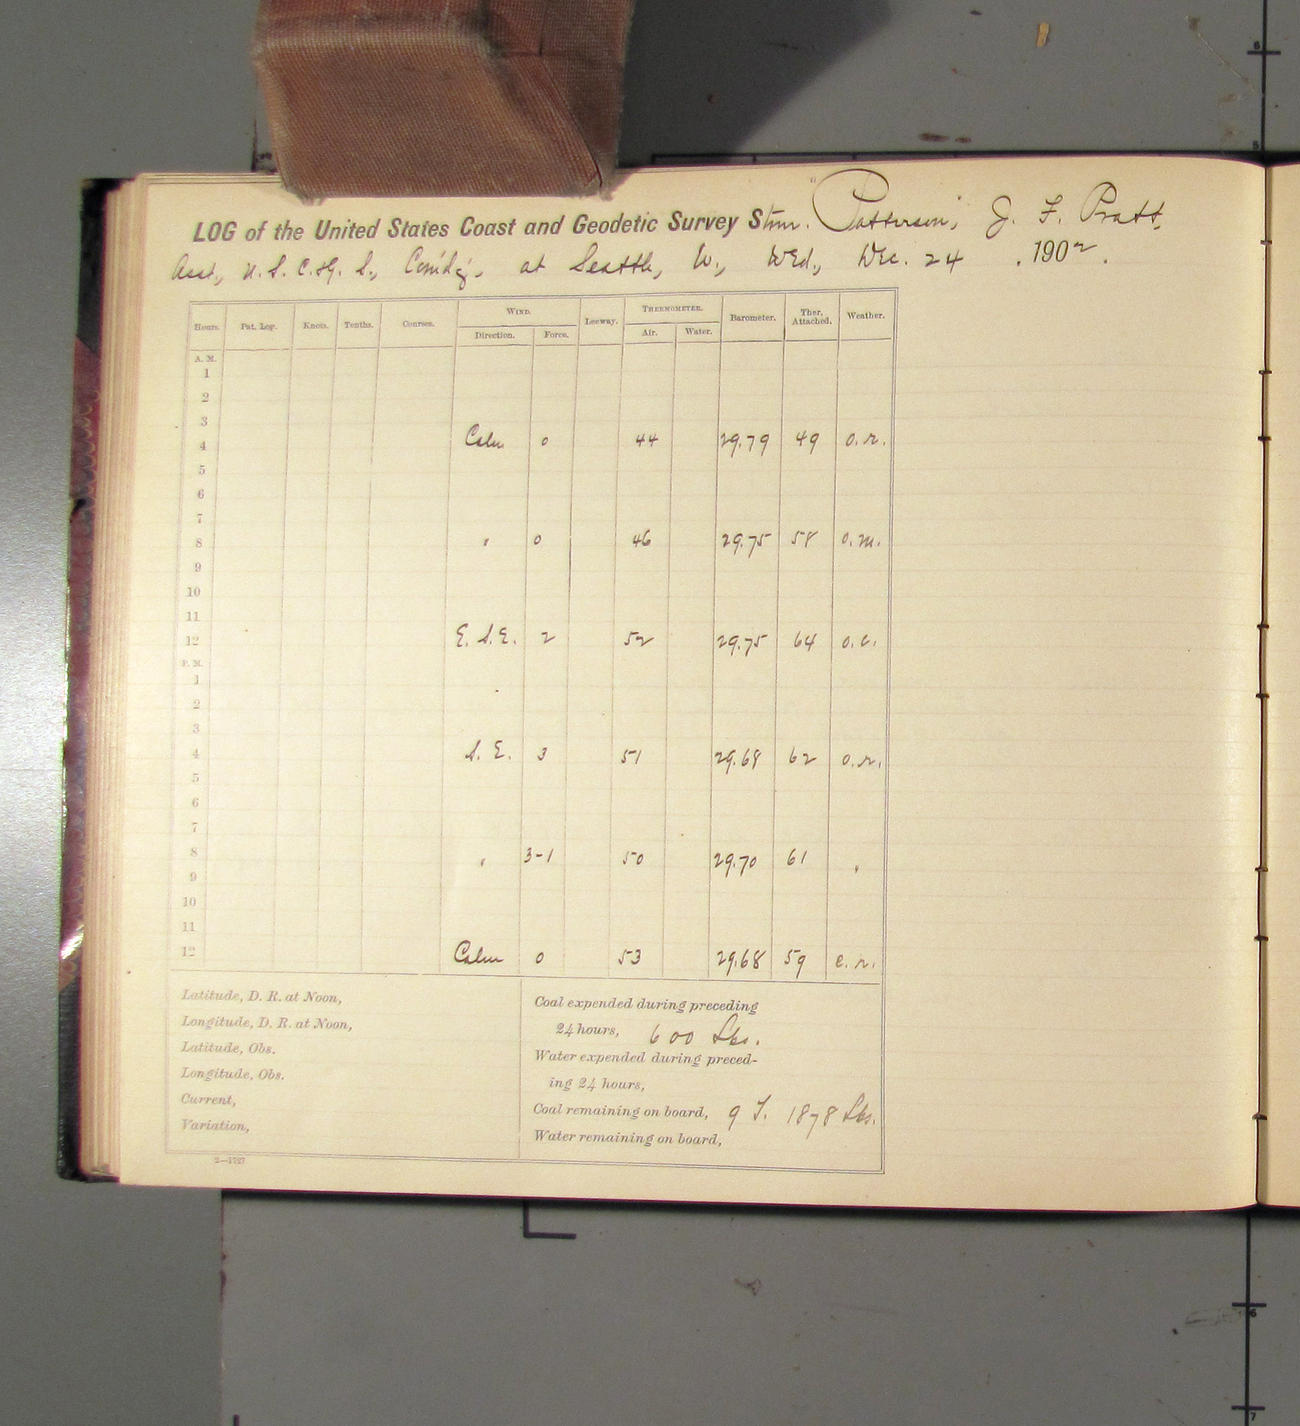 LOG of the United States Coast and Geodetic Survey Stmr. "Patterson", J. F. Pratt,
Asst., U. S. C. & G. S., Comd'g., at Seattle, W., Wed., Dec. 24, 1902.
Hours. Pat. Log. Knots. Tenths. Courses. WIND. Leeway. THERMOMETER. Barometer. Ther. Attached. Weather.
Direction. Force. Air. Water.
A. M.
1
2
3
4 Calm 0 44 29.79 49 o.r.
5
6
7
8 " 0 46 29.75 58 o.m.
9
10
11
12 E. S. E. 2 52 29.75 64 o.c.
P. M.
1
2
3
4 S. E. 3 51 29.68 62 o.r.
5
6
7
8 " 3-1 50 29.70 61 "
9
10
11
12 Calm 0 53 29.68 59 c.r.
Latitude, D. R. at Noon,
Longitude, D. R. at Noon,
Latitude, Obs.
Longitude, Obs.
Current,
Variation,
Coal expended during preceding
24 hours, 600 Lbs.
Water expended during preced-
ing 24 hours,
Coal remaining on board, 9 T. 1878 Lbs.
Water remaining on board,
2—1727
6
5
6
7